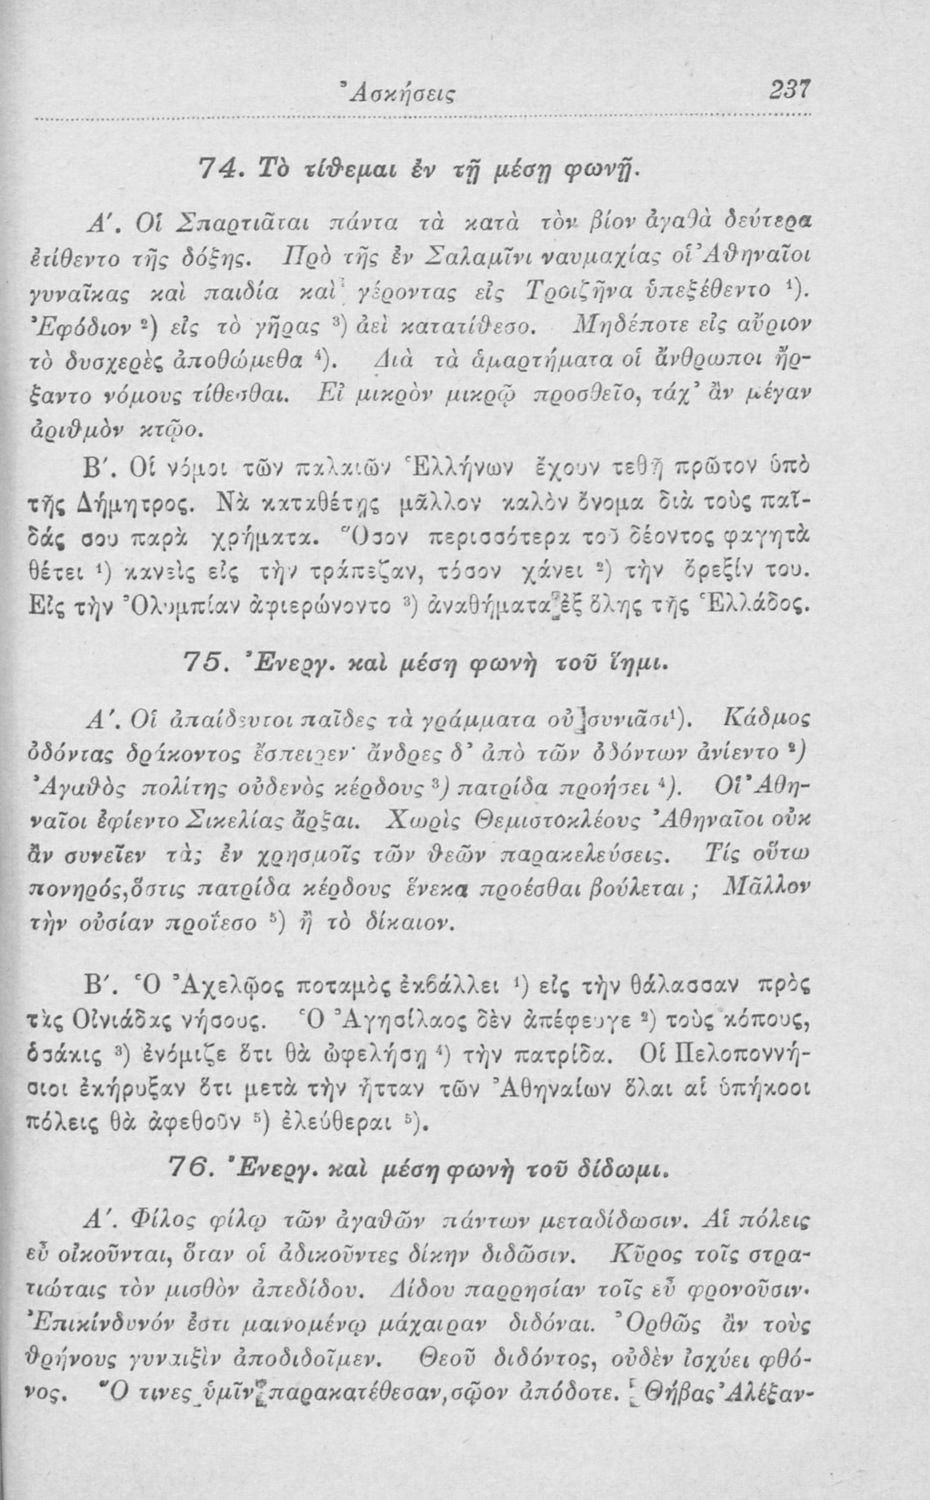 Ἀσκήσεις 237
74. Τὸ τίθεμαι ἐν τῇ μέσῃ φωνῇ.
Α΄. Οἱ Σπαρτιᾶται πάντα τὰ κατὰ τὸν βίον ἀγαθὰ δεύτερα
ἐτίθεντο τῆς δόξης. Πρὸ τῆς ἐν Σαλαμῖνι ναυμαχίας οἱ Ἀθηναῖοι
γυναῖκας καὶ παιδία καὶ γέροντας εἰς Τροιζῆνα ὑπεξέθεντο ¹).
Ἐφόδιον ²) εἰς τὸ γῆρας ³) ἀεὶ κατατίθεσο. Μηδέποτε εἰς αὔριον
τὸ δυσχερὲς ἀποθώμεθα ⁴). Διὰ τὰ ἁμαρτήματα οἱ ἄνθρωποι ἤρ-
ξαντο νόμους τίθεσθαι. Εἰ μικρὸν μικρῷ προσθεῖο, τάχ’ ἂν μέγαν
ἀριθμὸν κτῷο.
Β΄. Οἱ νόμοι τῶν παλαιῶν Ἑλλήνων ἔχουν τεθῆ πρῶτον ὑπὸ
τῆς Δήμητρος. Νὰ καταθέτῃς μᾶλλον καλὸν ὄνομα διὰ τοὺς παῖ-
δάς σου παρὰ χρήματα. Ὅσον περισσότερα τοῦ δέοντος φαγητὰ
θέτει ¹) κανεὶς εἰς τὴν τράπεζαν, τόσον χάνει ²) τὴν ὄρεξίν του.
Εἰς τὴν Ὀλυμπίαν ἀφιερώνοντο ³) ἀναθήματα ἐξ ὅλης τῆς Ἑλλάδος.
75. Ἐνεργ. καὶ μέση φωνὴ τοῦ ἵημι.
Α΄. Οἱ ἀπαίδευτοι παῖδες τὰ γράμματα οὐ συνιᾶσι¹). Κάδμος
ὀδόντας δράκοντος ἔσπειρεν· ἄνδρες δ’ ἀπὸ τῶν ὀδόντων ἀνίεντο ²)
Ἀγαθὸς πολίτης οὐδενὸς κέρδους ³) πατρίδα προήσει ⁴). Οἱ Ἀθη-
ναῖοι ἐφίεντο Σικελίας ἄρξαι. Χωρὶς Θεμιστοκλέους Ἀθηναῖοι οὐκ
ἂν συνεῖεν τὰς ἐν χρησμοῖς τῶν θεῶν παρακελεύσεις. Τίς οὕτω
πονηρός, ὅστις πατρίδα κέρδους ἕνεκα προέσθαι βούλεται ; Μᾶλλον
τὴν οὐσίαν προΐεσο ⁵) ἢ τὸ δίκαιον.
Β΄. Ὁ Ἀχελῷος ποταμὸς ἐκβάλλει ¹) εἰς τὴν θάλασσαν πρὸς
τὰς Οἰνιάδας νήσους. Ὁ Ἀγησίλαος δὲν ἀπέφευγε ²) τοὺς κόπους,
ὁσάκις ³) ἐνόμιζε ὅτι θὰ ὠφελήσῃ ⁴) τὴν πατρίδα. Οἱ Πελοποννή-
σιοι ἐκήρυξαν ὅτι μετὰ τὴν ἧτταν τῶν Ἀθηναίων ὅλαι αἱ ὑπήκοοι
πόλεις θὰ ἀφεθοῦν ⁵) ἐλεύθεραι ⁵).
76. Ἐνεργ. καὶ μέση φωνὴ τοῦ δίδωμι.
Α΄. Φίλος φίλῳ τῶν ἀγαθῶν πάντων μεταδίδωσιν. Αἱ πόλεις
εὖ οἰκοῦνται, ὅταν οἱ ἀδικοῦντες δίκην διδῶσιν. Κῦρος τοῖς στρα-
τιώταις τὸν μισθὸν ἀπεδίδου. Δίδου παρρησίαν τοῖς εὖ φρονοῦσιν.
Ἐπικίνδυνόν ἐστι μαινομένῳ μάχαιραν διδόναι. Ὀρθῶς ἂν τοὺς
θρήνους γυναιξὶν ἀποδιδοῖμεν. Θεοῦ διδόντος, οὐδὲν ἰσχύει φθό-
νος. Ὅ τινες ὑμῖν παρακατέθεσαν, σῷον ἀπόδοτε. Θήβας Ἀλέξαν-